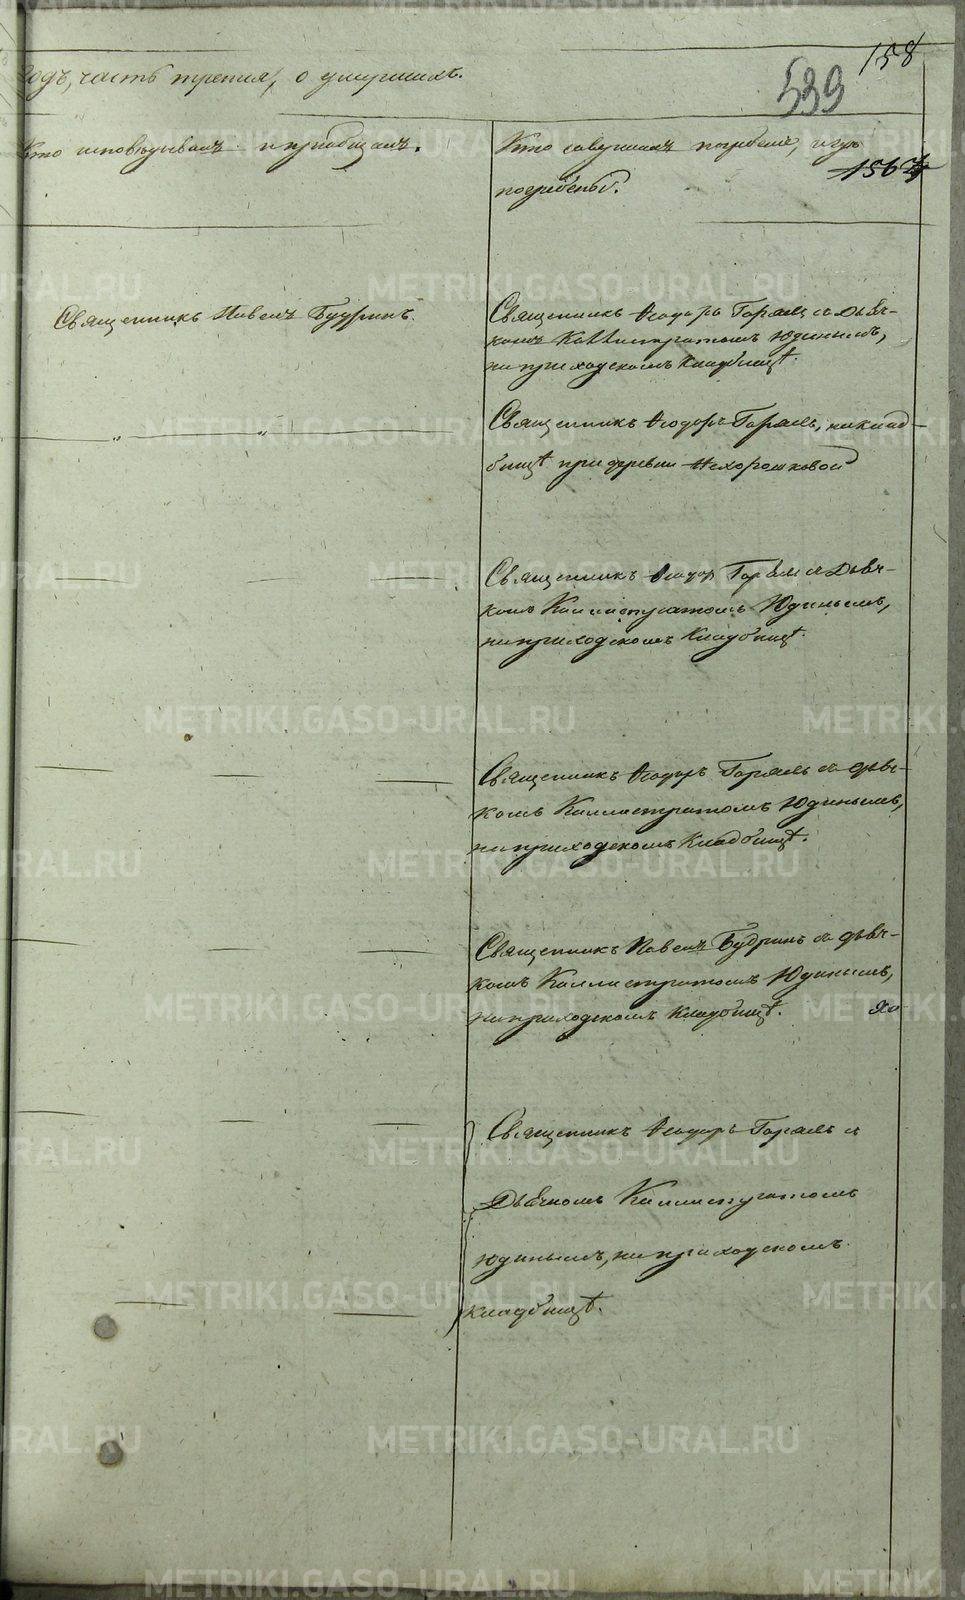 158
539
годъ, часть третія, о умершихъ.
Кто исповѣдывалъ и приобщалъ.
Кто совершалъ погребеніе, и гдѣ
погребены.
1564
Священникъ Павелъ Будринъ.
Священникъ Ѳеодоръ Горяевъ съ дьяч-
комъ Каллистратомъ Юдинымъ,
на приходскомъ кладбищѣ.
Священникъ Ѳеодоръ, на клад-
бищѣ при деревни Нехорошковой
Священникъ Ѳеодоръ съ Дьяч-
комъ Каллистратомъ Юдинымъ,
на приходскомъ Кладбищѣ.
Священникъ Ѳеодоръ съ дьяч-
комъ Каллистратомъ Юдинымъ,
на приходскомъ Кладбищѣ.
Священникъ Павелъ Будринъ съ дьяч-
комъ Каллистратомъ Юдинымъ,
на приходскомъ Кладбищѣ.
Священникъ Ѳеодоръ съ
Дьячкомъ Каллистратомъ
Юдинымъ, на приходскомъ
кладбищѣ.
METRIKI.GASO-URAL.RU